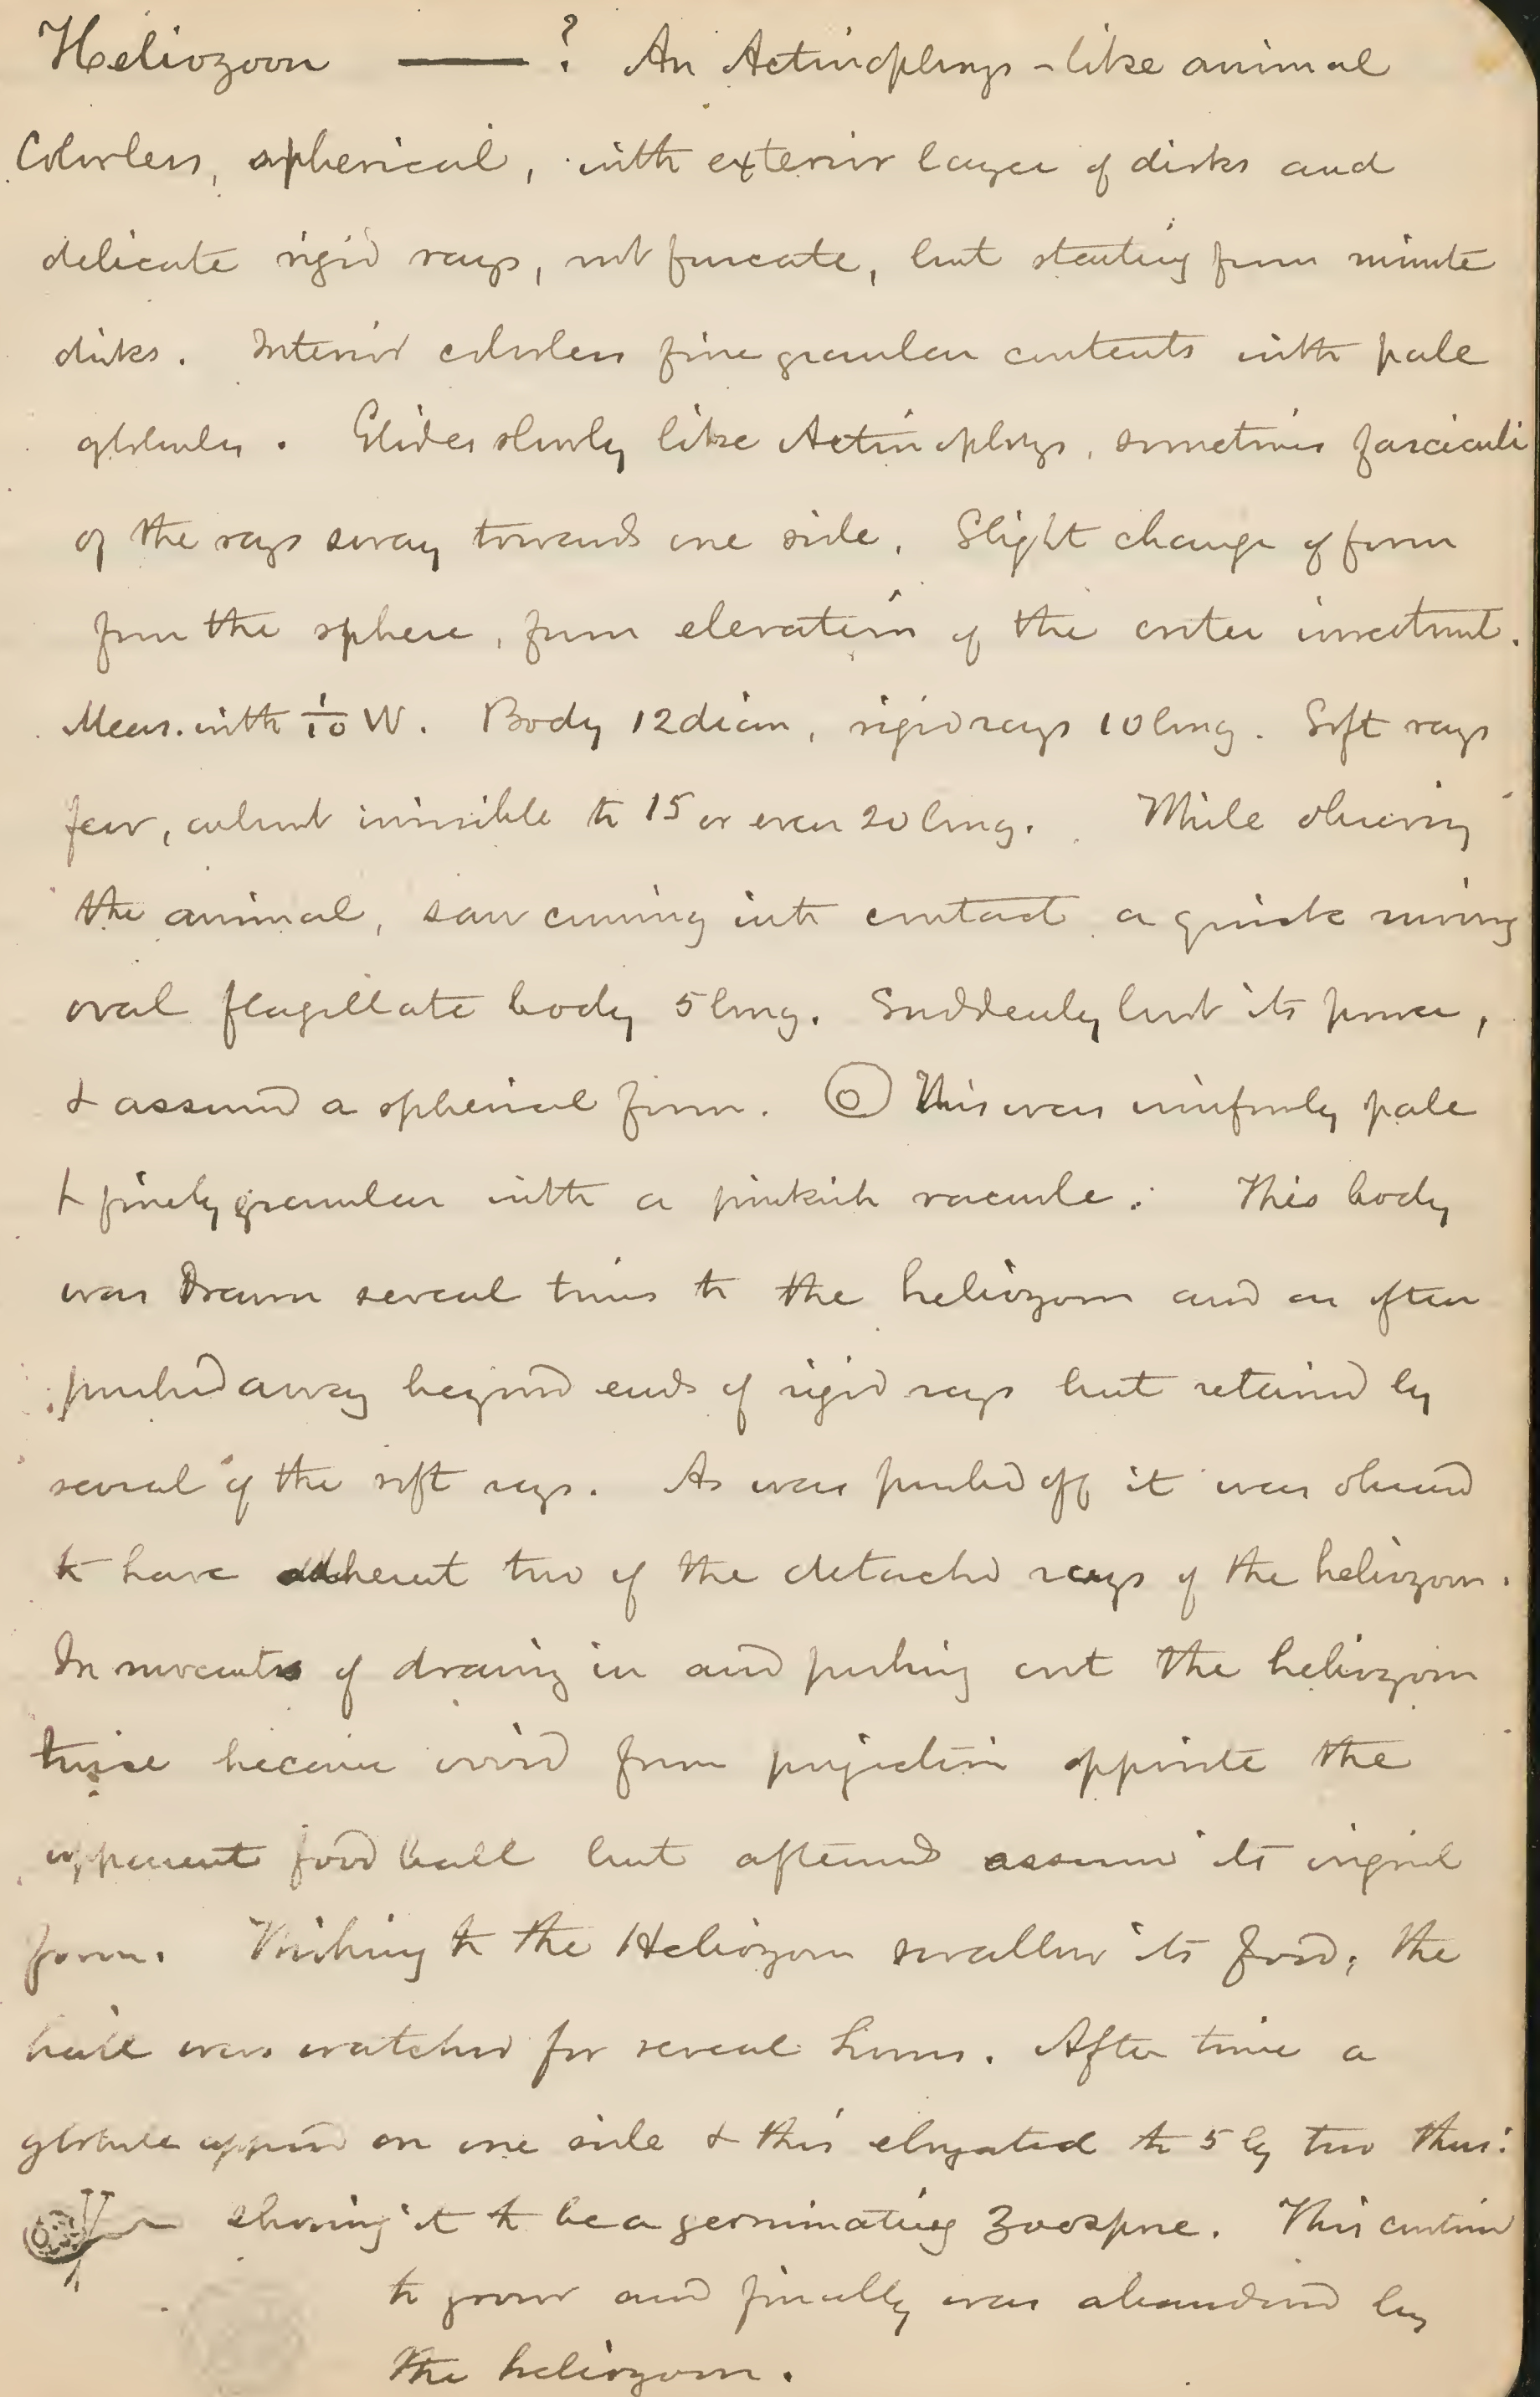 Heliozoon ——? An Actinophrys-like animal
Colorless, spherical, with exterior layer of disks and
delicate rigid rays, not furcate, but starting from minute
disks. Interior colorless fine granular contents with pale
globules. Glides slowly like Actinophrys, sometimes fasciculi
of the rays sway towards one side. Slight change of form
from the sphere, from elevation of the outer investment.
Meas. with 1/10 W. Body 12 diam, rigid rays 10 long. Soft rays
few, almost invisible to 15 or even 20 long. While observing
the animal, saw coming into contact a quick moving
oval flagellate body 5 long. Suddenly lost its power,
& assumed a spherical form. This was uniformly pale
& finely granular with a pinkish vacuole. This body
was drawn several times to the heliozoon and as often
pushed away beyond ends of rigid rays but retained by
several of the soft rays. As was pushed off it was observed
to have adherent two of the detached rays of the heliozoon.
In movements of drawing in and pushing out the heliozoon
twice became ovoid from projection opposite the
apparent food ball but afterwards assumed its original
form. Wishing to the Heliozoon swallow its food, the
ball was watched for several hours. After time a
globule appeared on one side & this elongated to 5 by two thus:
showing it to be a germinating zoospore. This continued
to grow and finally was abandoned by
the heliozoon.